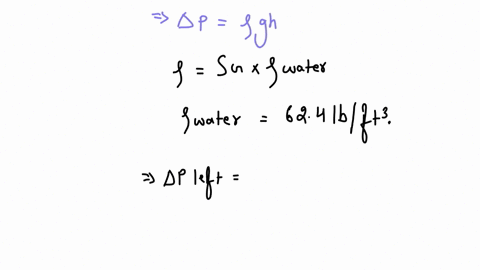 ⇒ ΔP = ρgh
ρ = Sn × ρ water
ρ water = 62.4 lb/ft³.
⇒ ΔP left =